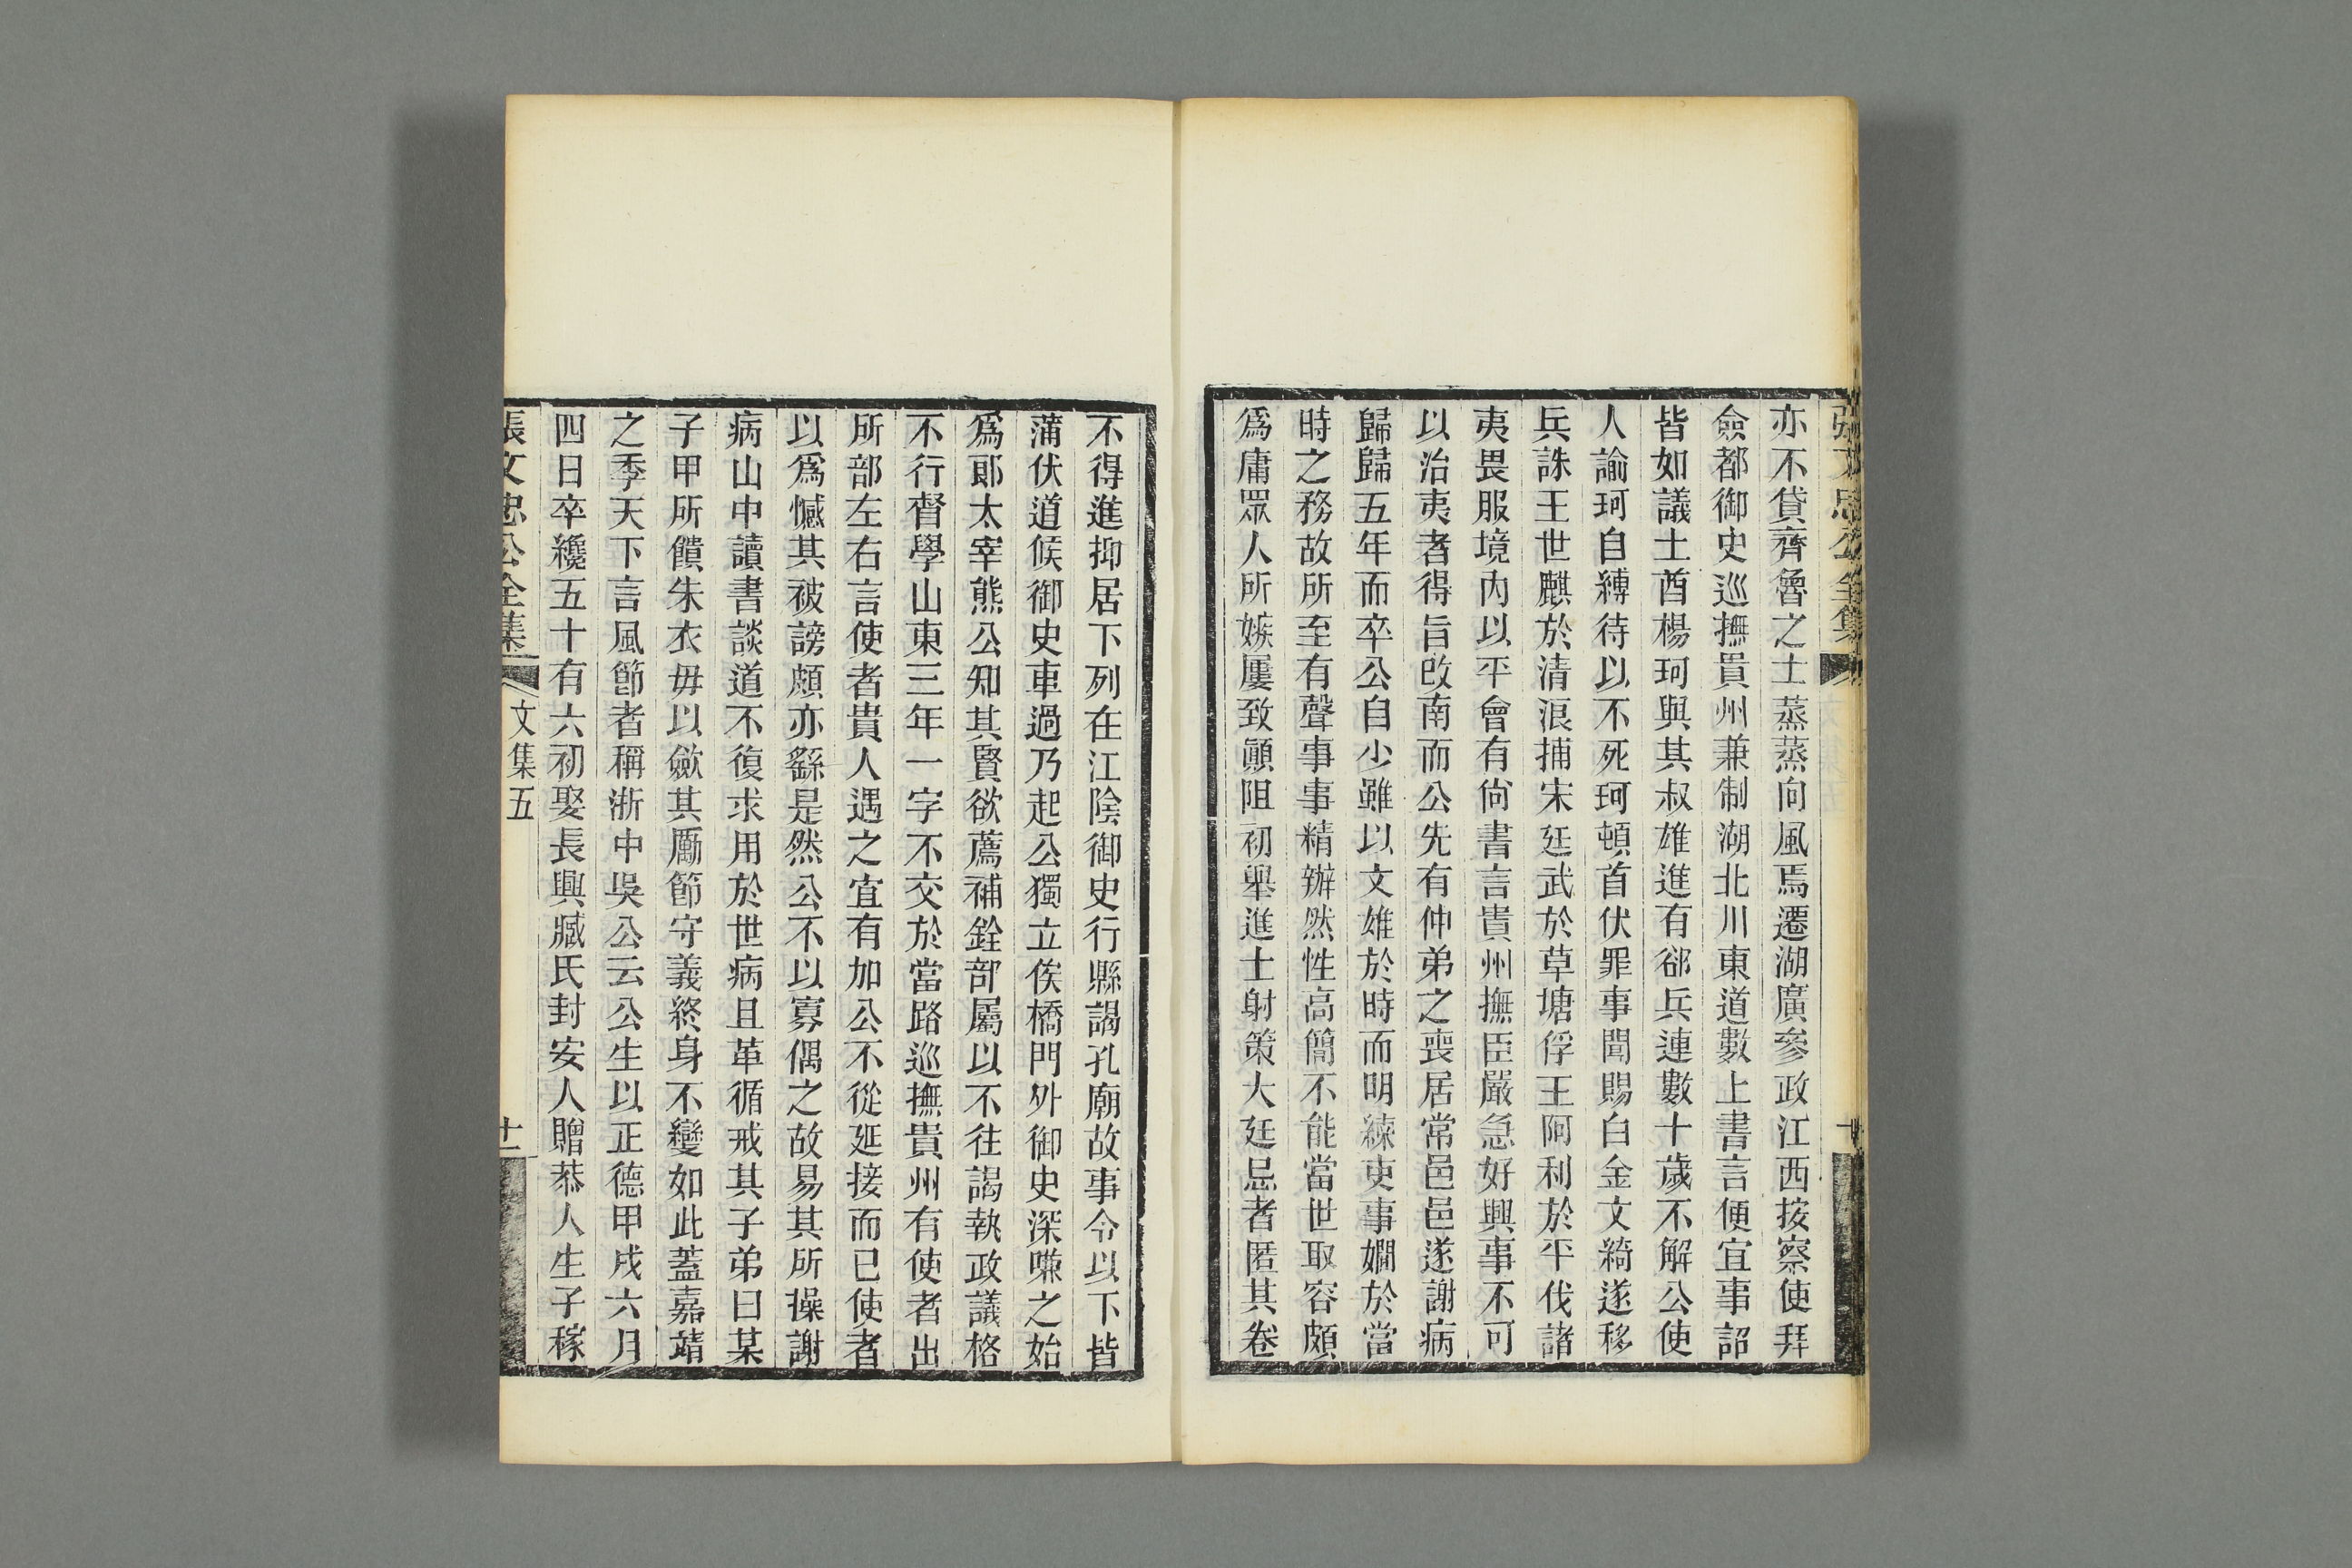 張文忠公全集
十
亦不貸齊魯之士蒸蒸向風焉遷湖廣參政江西按察使拜
僉都御史巡撫貴州兼制湖北川東道數上書言便宜事詔
皆如議土酋楊珂與其叔雄進有郤兵連數十歲不解公使
人諭珂自縛待以不死珂頓首伏罪事聞賜白金文綺遂移
兵誅王世麒於清浪捕宋廷武於草塘俘王阿利於平伐諸
夷畏服境內以平會有尙書言貴州撫臣嚴急好興事不可
以治夷者得旨改南而公先有仲弟之喪居常邑邑遂謝病
歸歸五年而卒公自少雖以文雄於時而明練吏事嫻於當
時之務故所至有聲事事精辦然性高簡不能當世取容頗
爲庸眾人所嫉屢致顚阻初舉進士射策大廷忌者匿其卷
不得進抑居下列在江陰御史行縣謁孔廟故事令以下皆
蒲伏道候御史車過乃起公獨立俟橋門外御史深嗛之始
爲郞太宰熊公知其賢欲薦補銓部屬以不往謁執政議格
不行督學山東三年一字不交於當路巡撫貴州有使者出
所部左右言使者貴人遇之宜有加公不從延接而已使者
以爲憾其被謗頗亦繇是然公不以寡偶之故易其所操謝
病山中讀書談道不復求用於世病且革循戒其子弟曰某
子甲所饋朱衣毋以斂其厲節守義終身不變如此蓋嘉靖
之季天下言風節者稱浙中吳公云公生以正德甲戌六月
四日卒纔五十有六初娶長興臧氏封安人贈恭人生子稼
張文忠公全集
文集五
十一